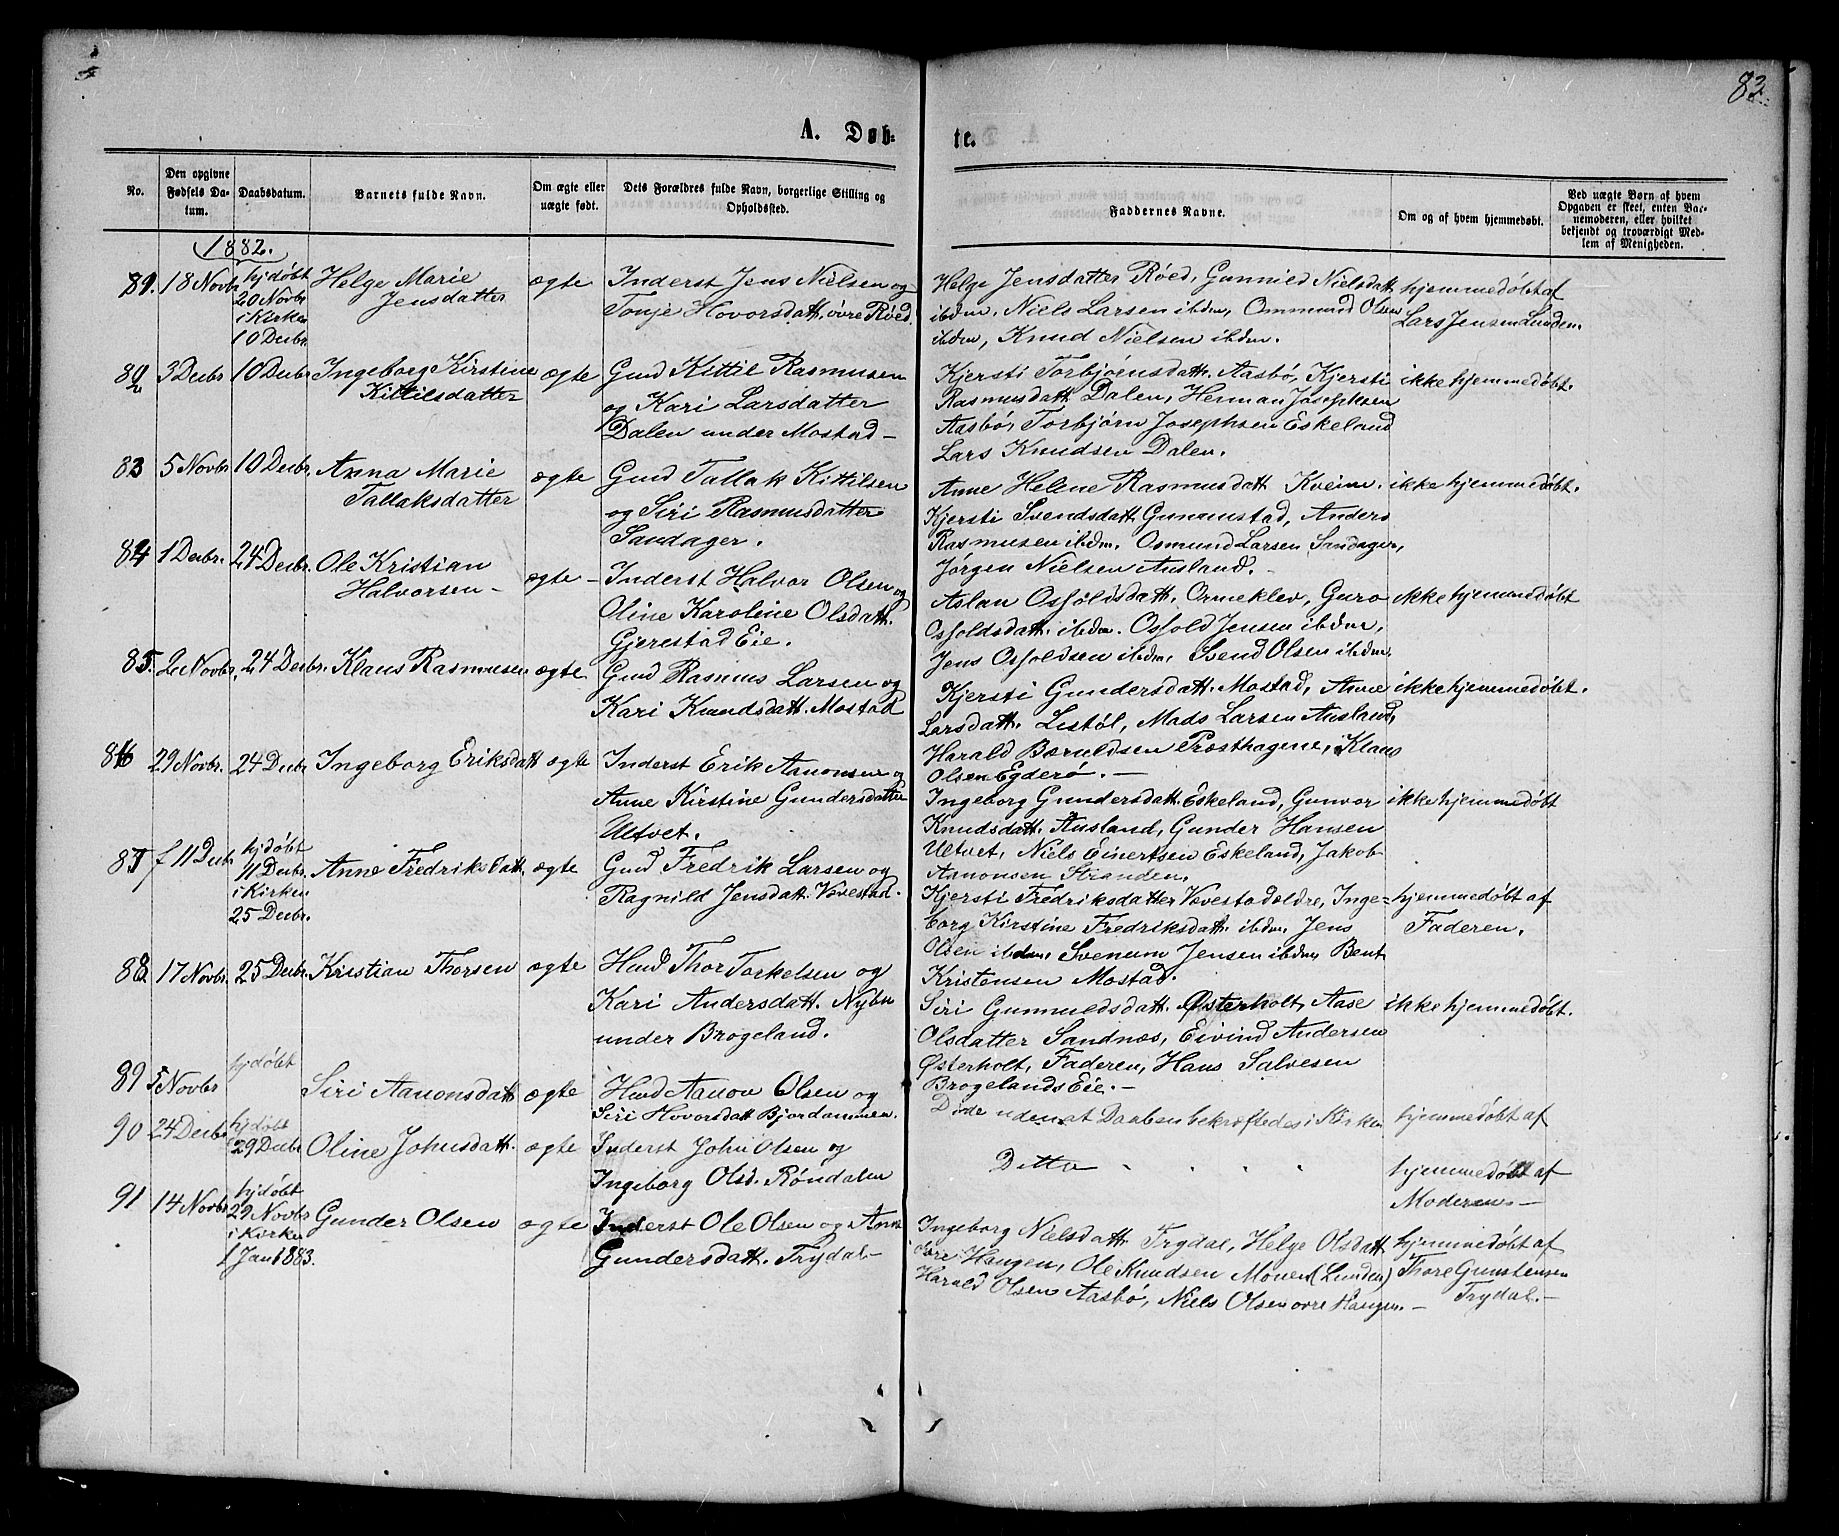 83.
A. Døb-
te.
No.
Den opgivne Fødsels Da-tum.
Daabsdatum.
Barnets fulde Navn.
Om ægte eller uægte født.
Dets Forældres fulde Navn, borgerlige Stilling og Opholdssted.
Faddernes Navne.
Om og af hvem hjemmedøbt.
Ved uægte Børn af hvem Opgaven er skeet, enten Bar-nemoderen, eller hvilket bekjendt og troværdigt Med-lem af Menigheden.
1882.
81. 18 Novbr hjdøbt 20 Novbr i Kirken 10 Decbr.
Helge Marie
Jensdatter
ægte
Inderst Jens Nielsen og
Tonje Hovorsdatt. øvre Røed.
Helge Jensdatter Røed, Gunnild Nielsdatt
ibdm, Niels Larsen ibdm, Ommund Olsen
ibdm, Knud Nielsen ibdm.
hjemmedøbt af
Lars Jensen Lunden.
82 3 Decbr 10 Decbr
Ingeborg Kirstine
Kittilsdatter
ægte
Gmd Kittil Rasmusen
og Kari Larsdatter
Dalen under Mostad
Kjersti Torbjørnsdatt. Aasbø, Kjersti
Rasmusdatt. Dalen, Herman Josephsen
Aasbø, Torbjørn Josephsen Eskeland
Lars Knudsen Dalen.
ikke hjemmedøbt.
83 5 Novbr. 10 Decbr.
Anna Marie
Tallaksdatter
ægte
Gmd Tallak Kittilsen
og Siri Rasmusdatter
Sandager.
Anne Helene Rasmusdatt Kveim.
Kjersti Svendsdatt. Gunnmstad, Anders
Rasmusen ibdm. Osmund Larsen Sandager,
Jørgen Nielsen Ausland.
ikke hjemmedøbt.
84 1 Decbr. 24 Decbr.
Ole Kristian
Halvorsen
ægte
Inderst Halvor Olsen og
Oline Karoline Olsdatt.
Gjerestad Eie.
Aslau Osfoldsdatt. Ormeklev, Guro
Osfoldsdatt. ibdm. Osfold Jensen ibdm,
Jens Osfoldsen ibdm, Svend Olsen ibdm.
ikke hjemmedøbt
85. 2 Novbr. 24 Decbr.
Klaus Rasmusen
ægte
Gmd Rasmus Larsen og
Kari Knudsdatt. Mostad
Kjersti Gundersdatt. Mostad, Anne
Larsdatt. Listøl, Mads Larsen Ausland,
Harald Bæruldsen Præsthagene, Klaus
Olsen Egderø.
ikke hjemmedøbt.
86 29 Novbr. 24 Decbr
Ingeborg Eriksdatt
ægte
Inderst Erik Aanonsen og
Anne Kirstine Gundersdatter
Ultvet.
Ingeborg Gundersdatt. Eskeland, Gunvor
Knudsdatt. Ausland, Gunder Hansen
Ultvet, Niels Einertsen Eskeland, Jakob
Aanonsen Stranden.
ikke hjemmedøbt
87 f 11 Decbr hjdøbt 11 Decbr. i Kirken 25 Decbr.
Anne Fredriksdatt.
ægte
Gmd Fredrik Larsen og
Ragnild Jensdatt. Vovestad.
Kjersti Fredriksdatter Vovestad ældre, Inge-
borg Kirstine Fredriksdatt. ibdm, Jens
Olsen ibdm, Svenum Jensen ibdm, Bent
Kristensen Mostad.
hjemmedøbt af
Faderen.
88 17 Novbr. 25 Decbr.
Kristian Thorsen
ægte
Hmd Thor Torkelsen og
Kari Andersdatt. Nybu
under Brogeland.
Siri Gunnuldsdatt. Østerholt, Aase
Olsdatter Sandnæs, Eivind Andersen
Østerholt, Faderen, Hans Salvesen
Brogelands Eie.
ikke hjemmedøbt.
89 5 Novbr hjdøbt
Siri Aanonsdatt
ægte
Hmd Aanon Olsen og
Siri Hovorsdatt Bjordammen.
Døde uden at Daaben bekræftedes i Kirken
hjemmedøbt af
90 24 Decbr hjdøbt 29 Decbr
Oline Johnsdatt.
ægte
Inderst John Olsen og
Ingeborg Olsd. Røndalen
Ditto
hjemmedøbt af
Moderen.
91 14 Novbr hjdøbt 29 Novbr i Kirken 1 Jan 1883.
Gunder Olsen
ægte
Inderst Ole Olsen og Anne
Gundersdatt. Trydal
Ingeborg Nielsdatt. Trydal, Helge Olsdatt
øvre Haugen, Ole Knudsen Monen (Lunden)
Harald Olsen Aasbø, Niels Olsen øvre Haugen.
hjemmedøbt af
Thore Gunstensen
Trydal.